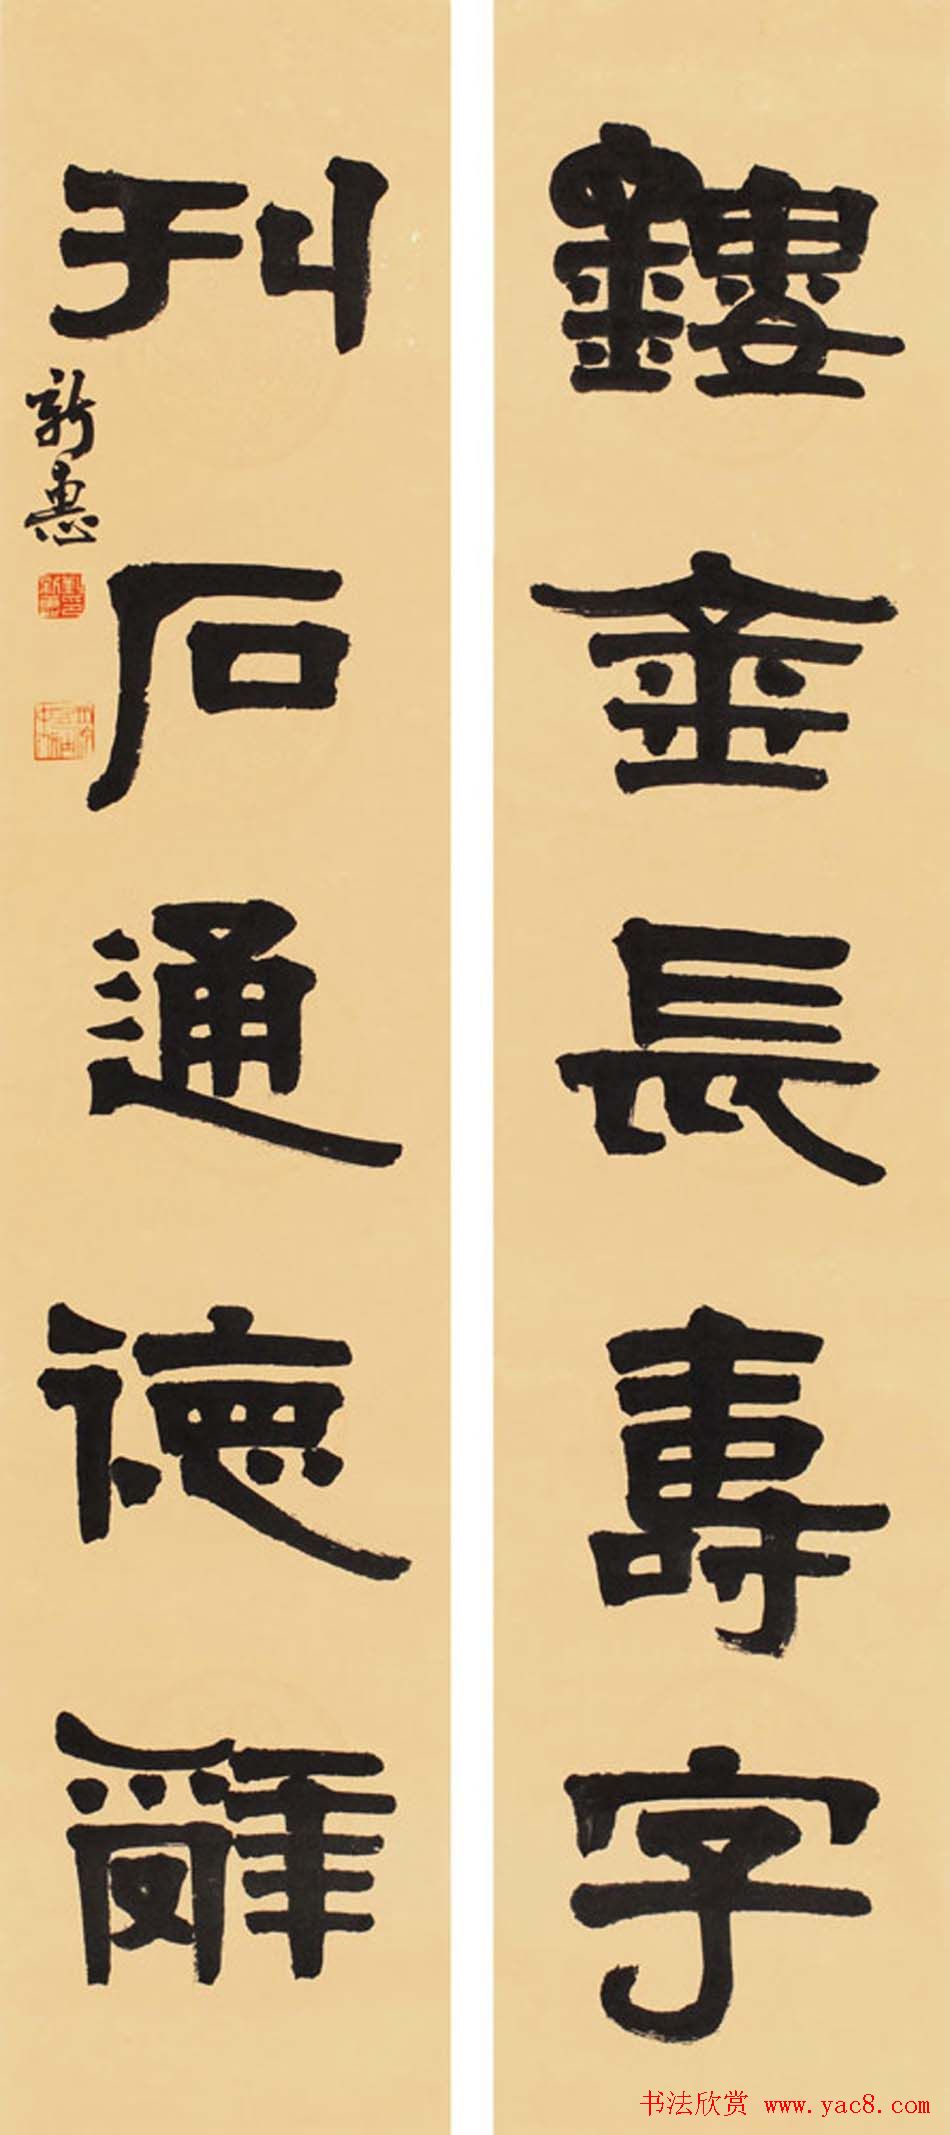 鏤金長壽字
刊石通德辭
新惠
书法欣赏 www.yac8.com